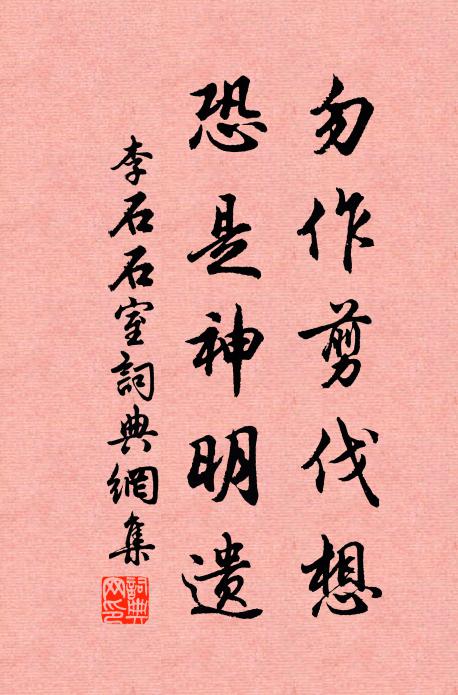 勿作剪伐想
恐是神明遗
李石石室詞典網集
詞典
网印